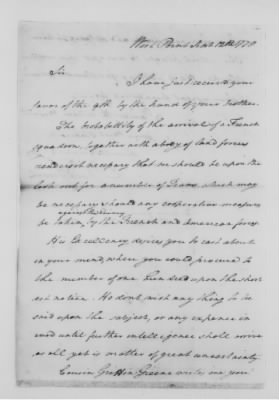 West Point 
Sir
I have just received your
favor of the 9th by the hand of your Brother.
The Probability of the arrival of a French
Squadron, together with a body of land forces
renders it necessary that we should be upon the
look out for a number of Teams which may
be necessary should any cooperative measures
against the Enemy
be taken, by the French and American forces.
His Excellency desires you to cast about
in your mind, where you could procure to
the number of one Hundred upon the short
est notice. He dont wish any thing to be
said upon the subject, or any expence in
cured until further intelligence shall arrive
as all yet is matter of great uncertainty.
Cousin Griffin Greene wrote me